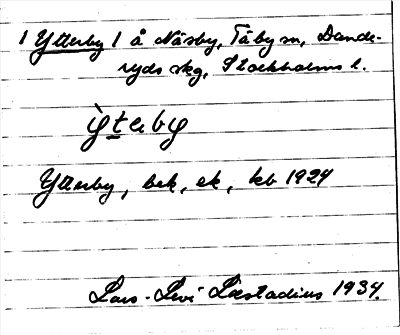 1 Ytterby 1 å Näsby, Täby sn, Dande-
ryds skg, Stockholms l.
ỳteby
Ytterby, bek, ek, kb 1924
Lars-Levi Læstadius 1934.